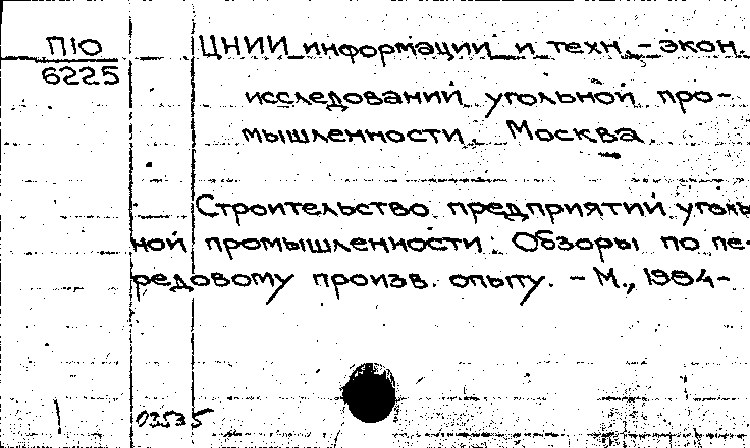 П10
6225
ЦНИИ информации и техн.-экон.
исследований угольной про-
мышленности. Москва.
Строительство предприятий уголь
ной промышленности. Обзоры по пе-
редовому произв. опыту. - М., 1984-
03535